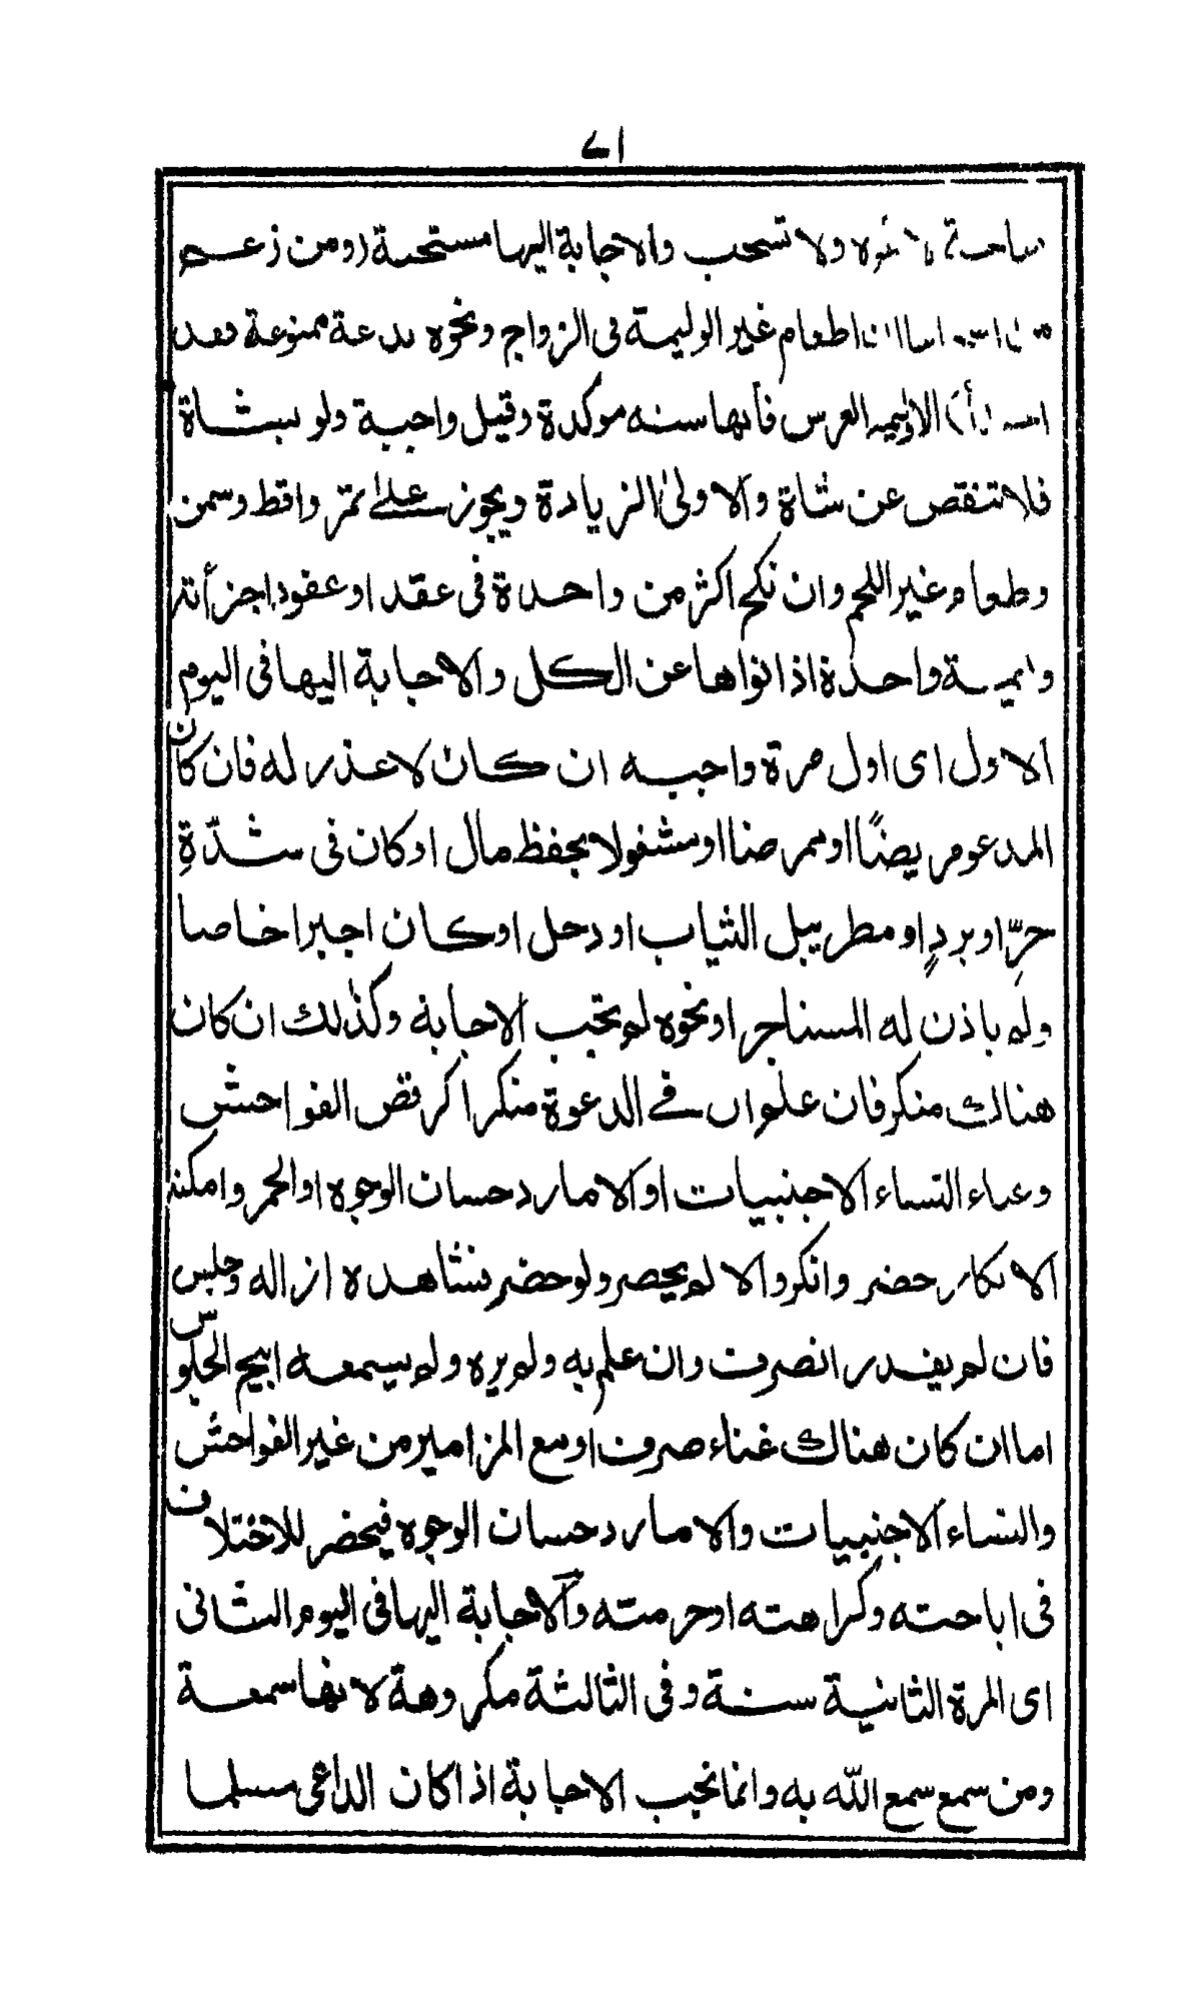 ٧١
ولا تستحب والاجابة اليها مستحبة (ومن زعم
اطعام غير الوليمة فى الزواج ونحوه بدعة ممنوعة فقد
الا وليمة العرس فانها سنة موكدة وقيل واجبة ولو بشاة
فلا تنقص عن شاة والاولىٰ الزيادة ويجوز علىٰ تمر واقط وسمن
وطعام غير اللحم وان نكح اكثر من واحدة فى عقد او عقود اجزأته
وليمة واحدة اذا نواها عن الكل والاجابة اليها فى اليوم
الاول اى اول مرة واجبة ان كان لا عذر له فان كان
المدعو مريضًا او ممرضا او مشغولا بحفظ مال او كان فى شدّةِ
حرِّ او بردٍ او مطر يبل الثياب او دحل او كان اجيرا خاصا
ولم ياذن له المستاجر او نحوه لم تجب الاجابة وكذٰلك ان كان
هناك منكر فان علم ان فے الدعوة منكرا كرقص الفواحش
وغناء النساء الاجنبيات او الامارد حسان الوجوه او الخمر وامكنه
الانكار حضر وانكر والا لم يحضر ولو حضر فشاهده ازاله وجلس
فان لم يقدر انصرف وان علم به ولم يره ولم يسمعه ابيح الجلوس
اما ان كان هناك غناء صرف او مع المزامير من غير الفواحش
والنساء الاجنبيات والامارد حسان الوجوه فيحضر للاختلاف
فى اباحته وكراهته او حرمته والاجابة اليها فى اليوم الثانى
اى المرة الثانية سنة وفى الثالثة مكروهة لانها سمعة
ومن سمع سمع الله به وانما تجب الاجابة اذا كان الداعى مسلما